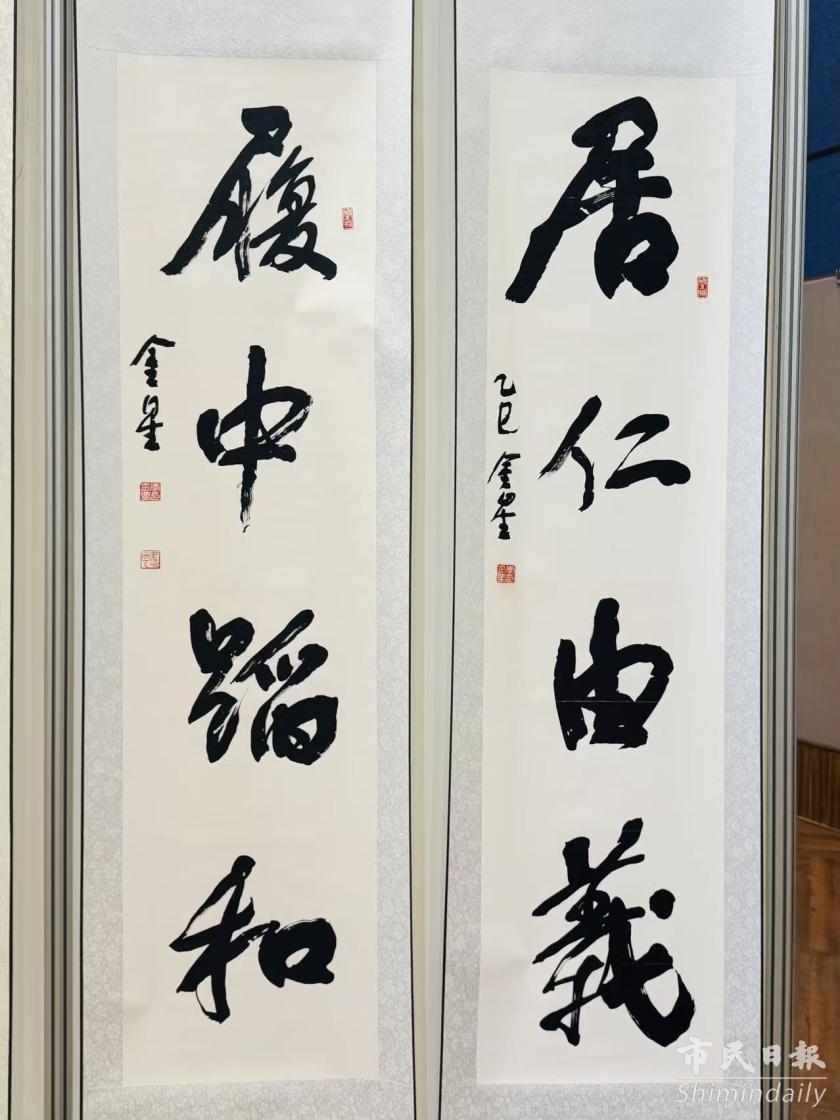 居仁由義
乙巳 金星
履中蹈和
金星
市民日報
Shimindaily